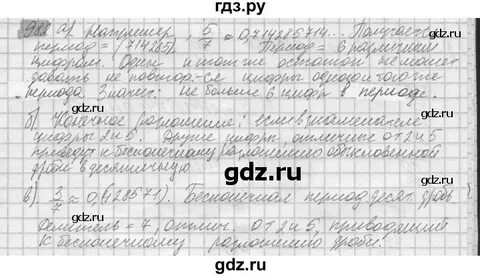 gdz.ru
988 а) Например, 5/7 ≈ 0,714285714... Получается
период = (714285). Период = 6 различным
цифрам. Один и тот же остаток не может
давать не повтор-ся цифры одного и того же
периода. Значит: не больше 6 цифр в периоде.
gdz.ru
б) Конечное разложение: если в знаменателе
цифры 2 и 5. Другие цифры, отличные от 2 и 5
приведут к бесконечному разложению обыкновенной
дроби в десятичную. gdz.ru
в) 3/7 ≈ 0,(428571). Бесконечная период десят. дробь
Делитель = 7, отлич. от 2 и 5, приводящий
к бесконечному разложению дроби.
gdz.ru